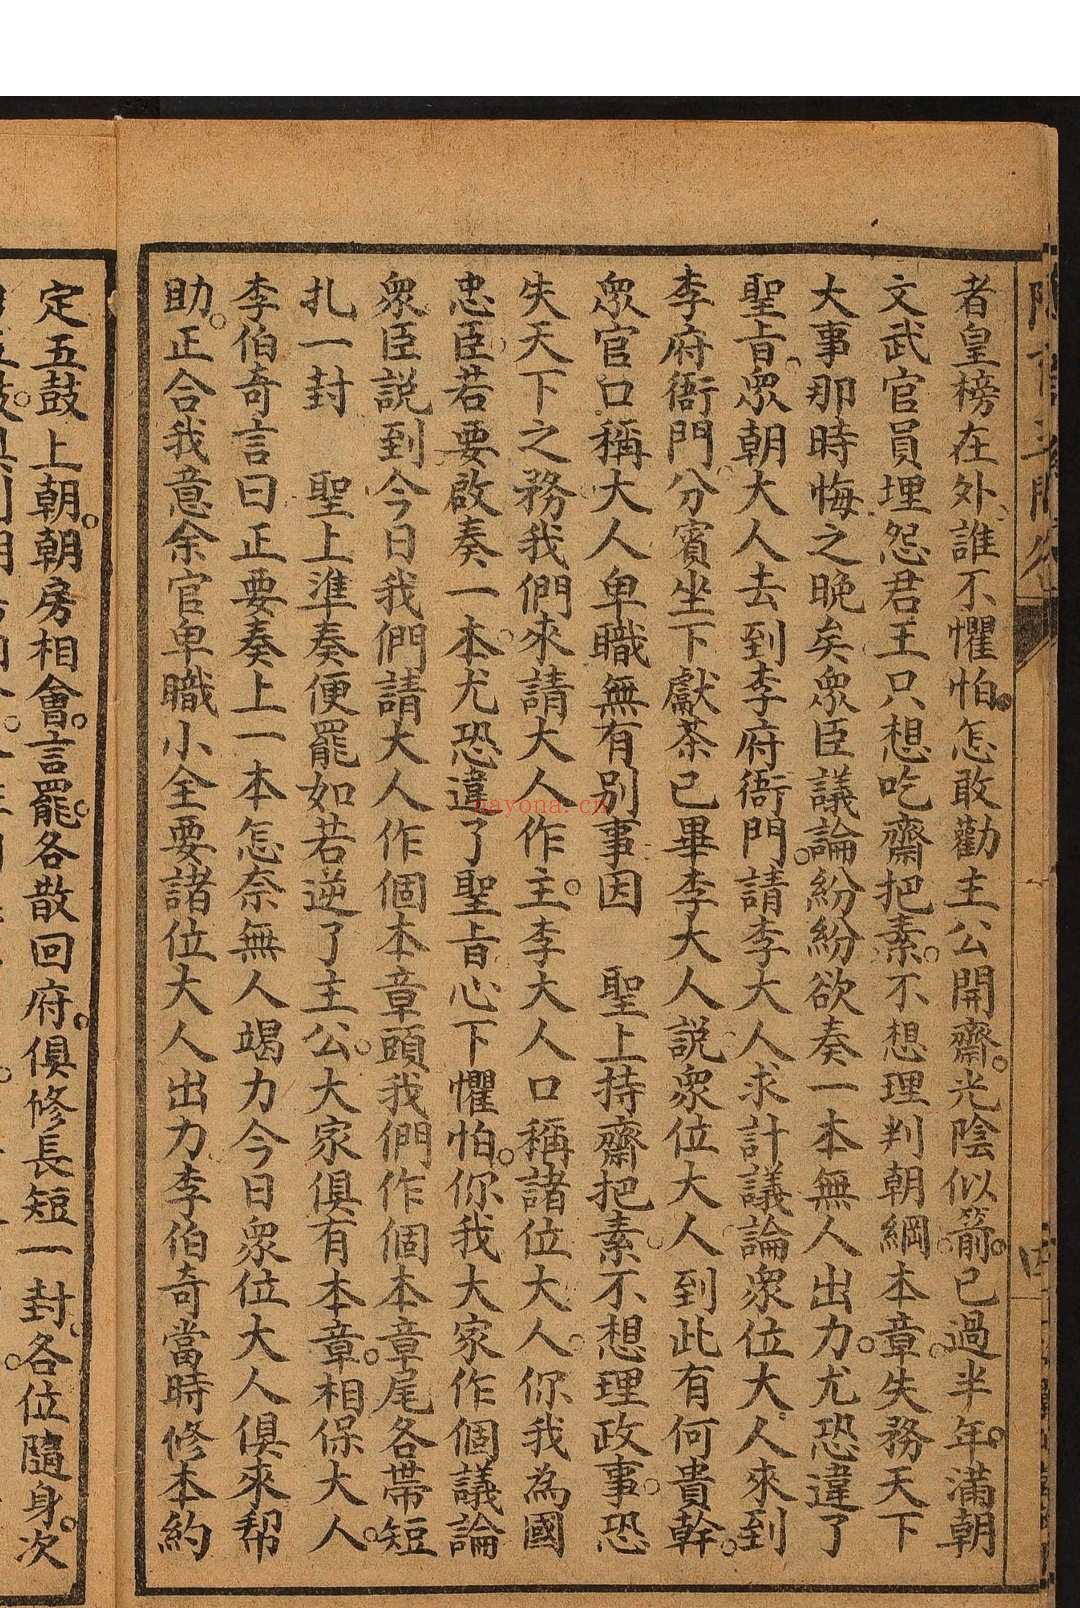 者皇榜在外誰不懼怕。怎敢勸主公開齋。光陰似箭。已過半年。滿朝
文武官員埋怨君王只想吃齋把素。不想理判朝綱。本章失務天下
大事那時悔之晚矣眾臣議論紛紛欲奏一本無人出力。尤恐違了
聖旨。眾朝大人去到李府衙門。請李大人求計議論眾位大人來到
李府衙門。分賓坐下獻茶已畢李大人説眾位大人到此有何貴幹。
眾官口稱大人卑職無有別事因　聖上持齋把素。不想理政事。恐
失天下之務我們來請大人作主。李大人口稱諸位大人。你我為國
忠臣。若要啟奏一本。尤恐違了聖旨。心下懼怕。你我大家作個議論
眾臣說到今日我們請大人作個本章頭我們作個本章尾各帶短
扎一封　聖上準奏便罷如若逆了主公。大家俱有本章。相保大人。
李伯奇言曰正要奏上一本怎奈無人竭力今日眾位大人俱來幫
助。正合我意余官卑職小全要諸位大人出力李伯奇當時修本約
定五鼓上朝。朝房相會。言罷。各散回府。俱修長短一封。各位隨身。次
gayona.cn